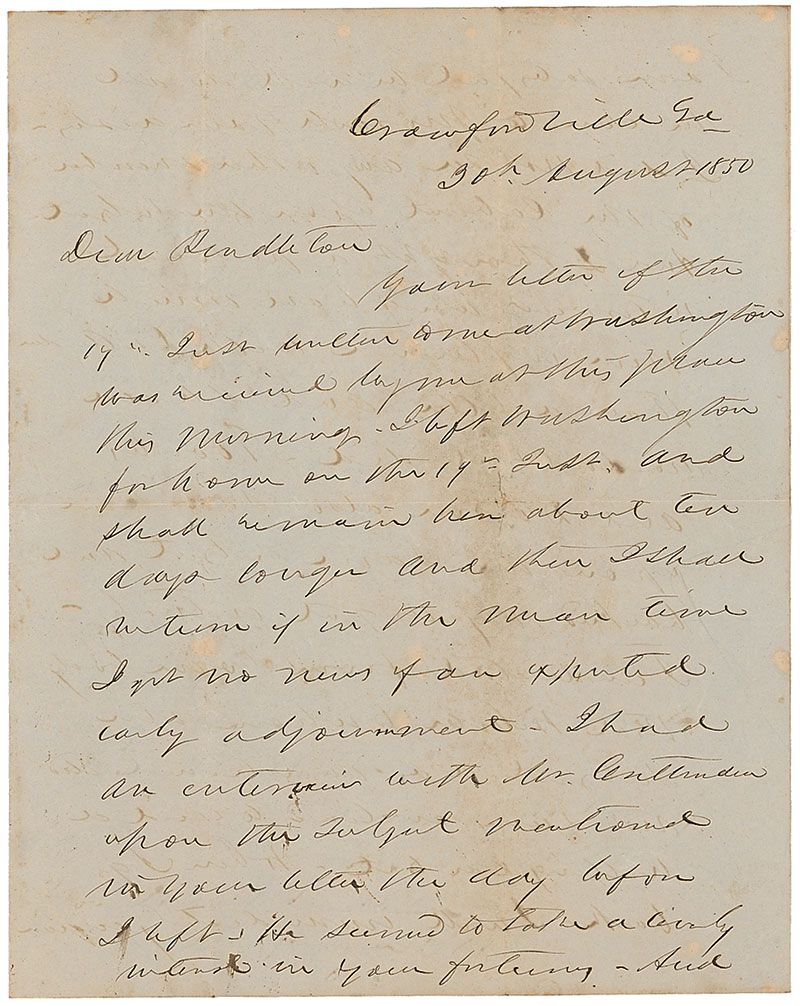 Crawfordville Ga
30th August 1850
Dear Pendleton
Your letter of the
19th Inst written to me at Washington
was received by me at this place
this morning - I left Washington
for home on the 19th Inst. and
shall remain here about ten
days longer and then I shall
return if in the mean time
I get no news of an expected
early adjournment - I had
an interview with Mr. Crittenden
upon the subject mentioned
in your letter the day before
I left - He seemed to take a lively
interest in your fortunes - And